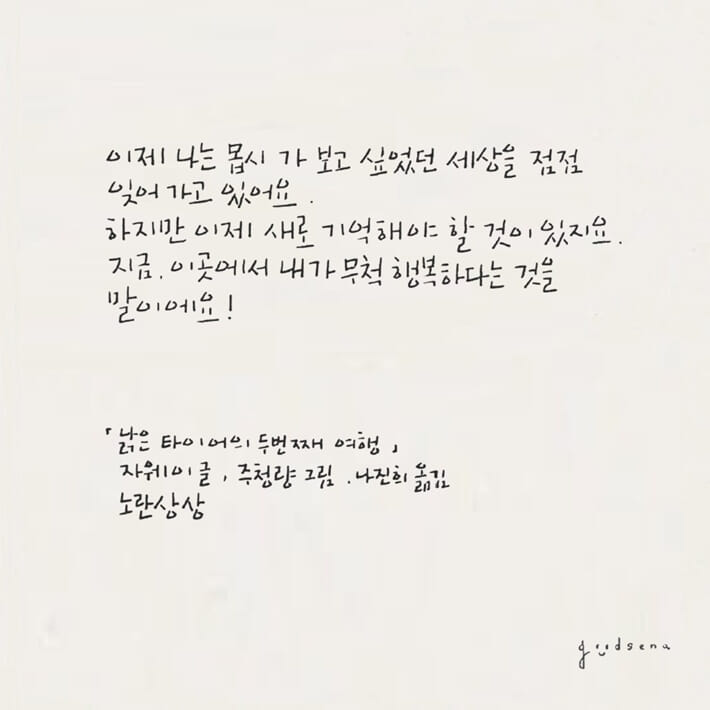 이제 나는 몹시 가 보고 싶었던 세상을 점점
잊어 가고 있어요.
하지만 이제 새로 기억해야 할 것이 있지요.
지금, 이곳에서 내가 무척 행복하다는 것을
말이에요!
「낡은 타이어의 두번째 여행」
자웨이 글, 주청량 그림, 나진희 옮김
노란상상
goodsena